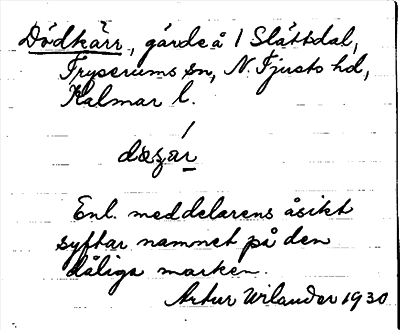 Dödkärr, gärde å 1 Slättdal,
Tryserums sn, N. Tjusts hd,
Kalmar l.
Enl. meddelarens åsikt
syftar namnet på den
dåliga marken.
Artur Wilander 1930